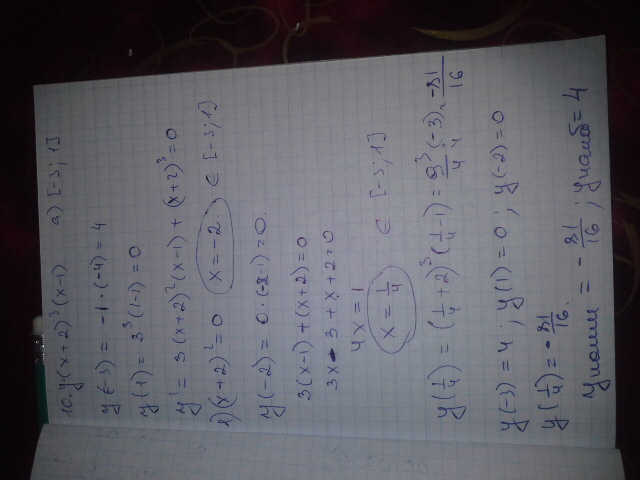 10. y(x+2)³(x-1)   a) [-3;1]
y(-3) = -1·(-4) = 4
y(1) = 3³(1-1) = 0
y' = 3(x+2)²(x-1) + (x+2)³ = 0
1) (x+2)² = 0   x = -2. ∈ [-3;1]
y(-2) = 0·(-2-1) = 0.
3(x-1) + (x+2) = 0
3x - 3 + x + 2 = 0
4x = 1
x = 1/4   ∈ [-3;1]
y(1/4) = (1/4+2)³(1/4-1) = 9³/4·(-3)/4 = -81/16
y(-3) = 4; y(1) = 0; y(-2) = 0
y(1/4) = -81/16.
y наим = -81/16; y наиб = 4